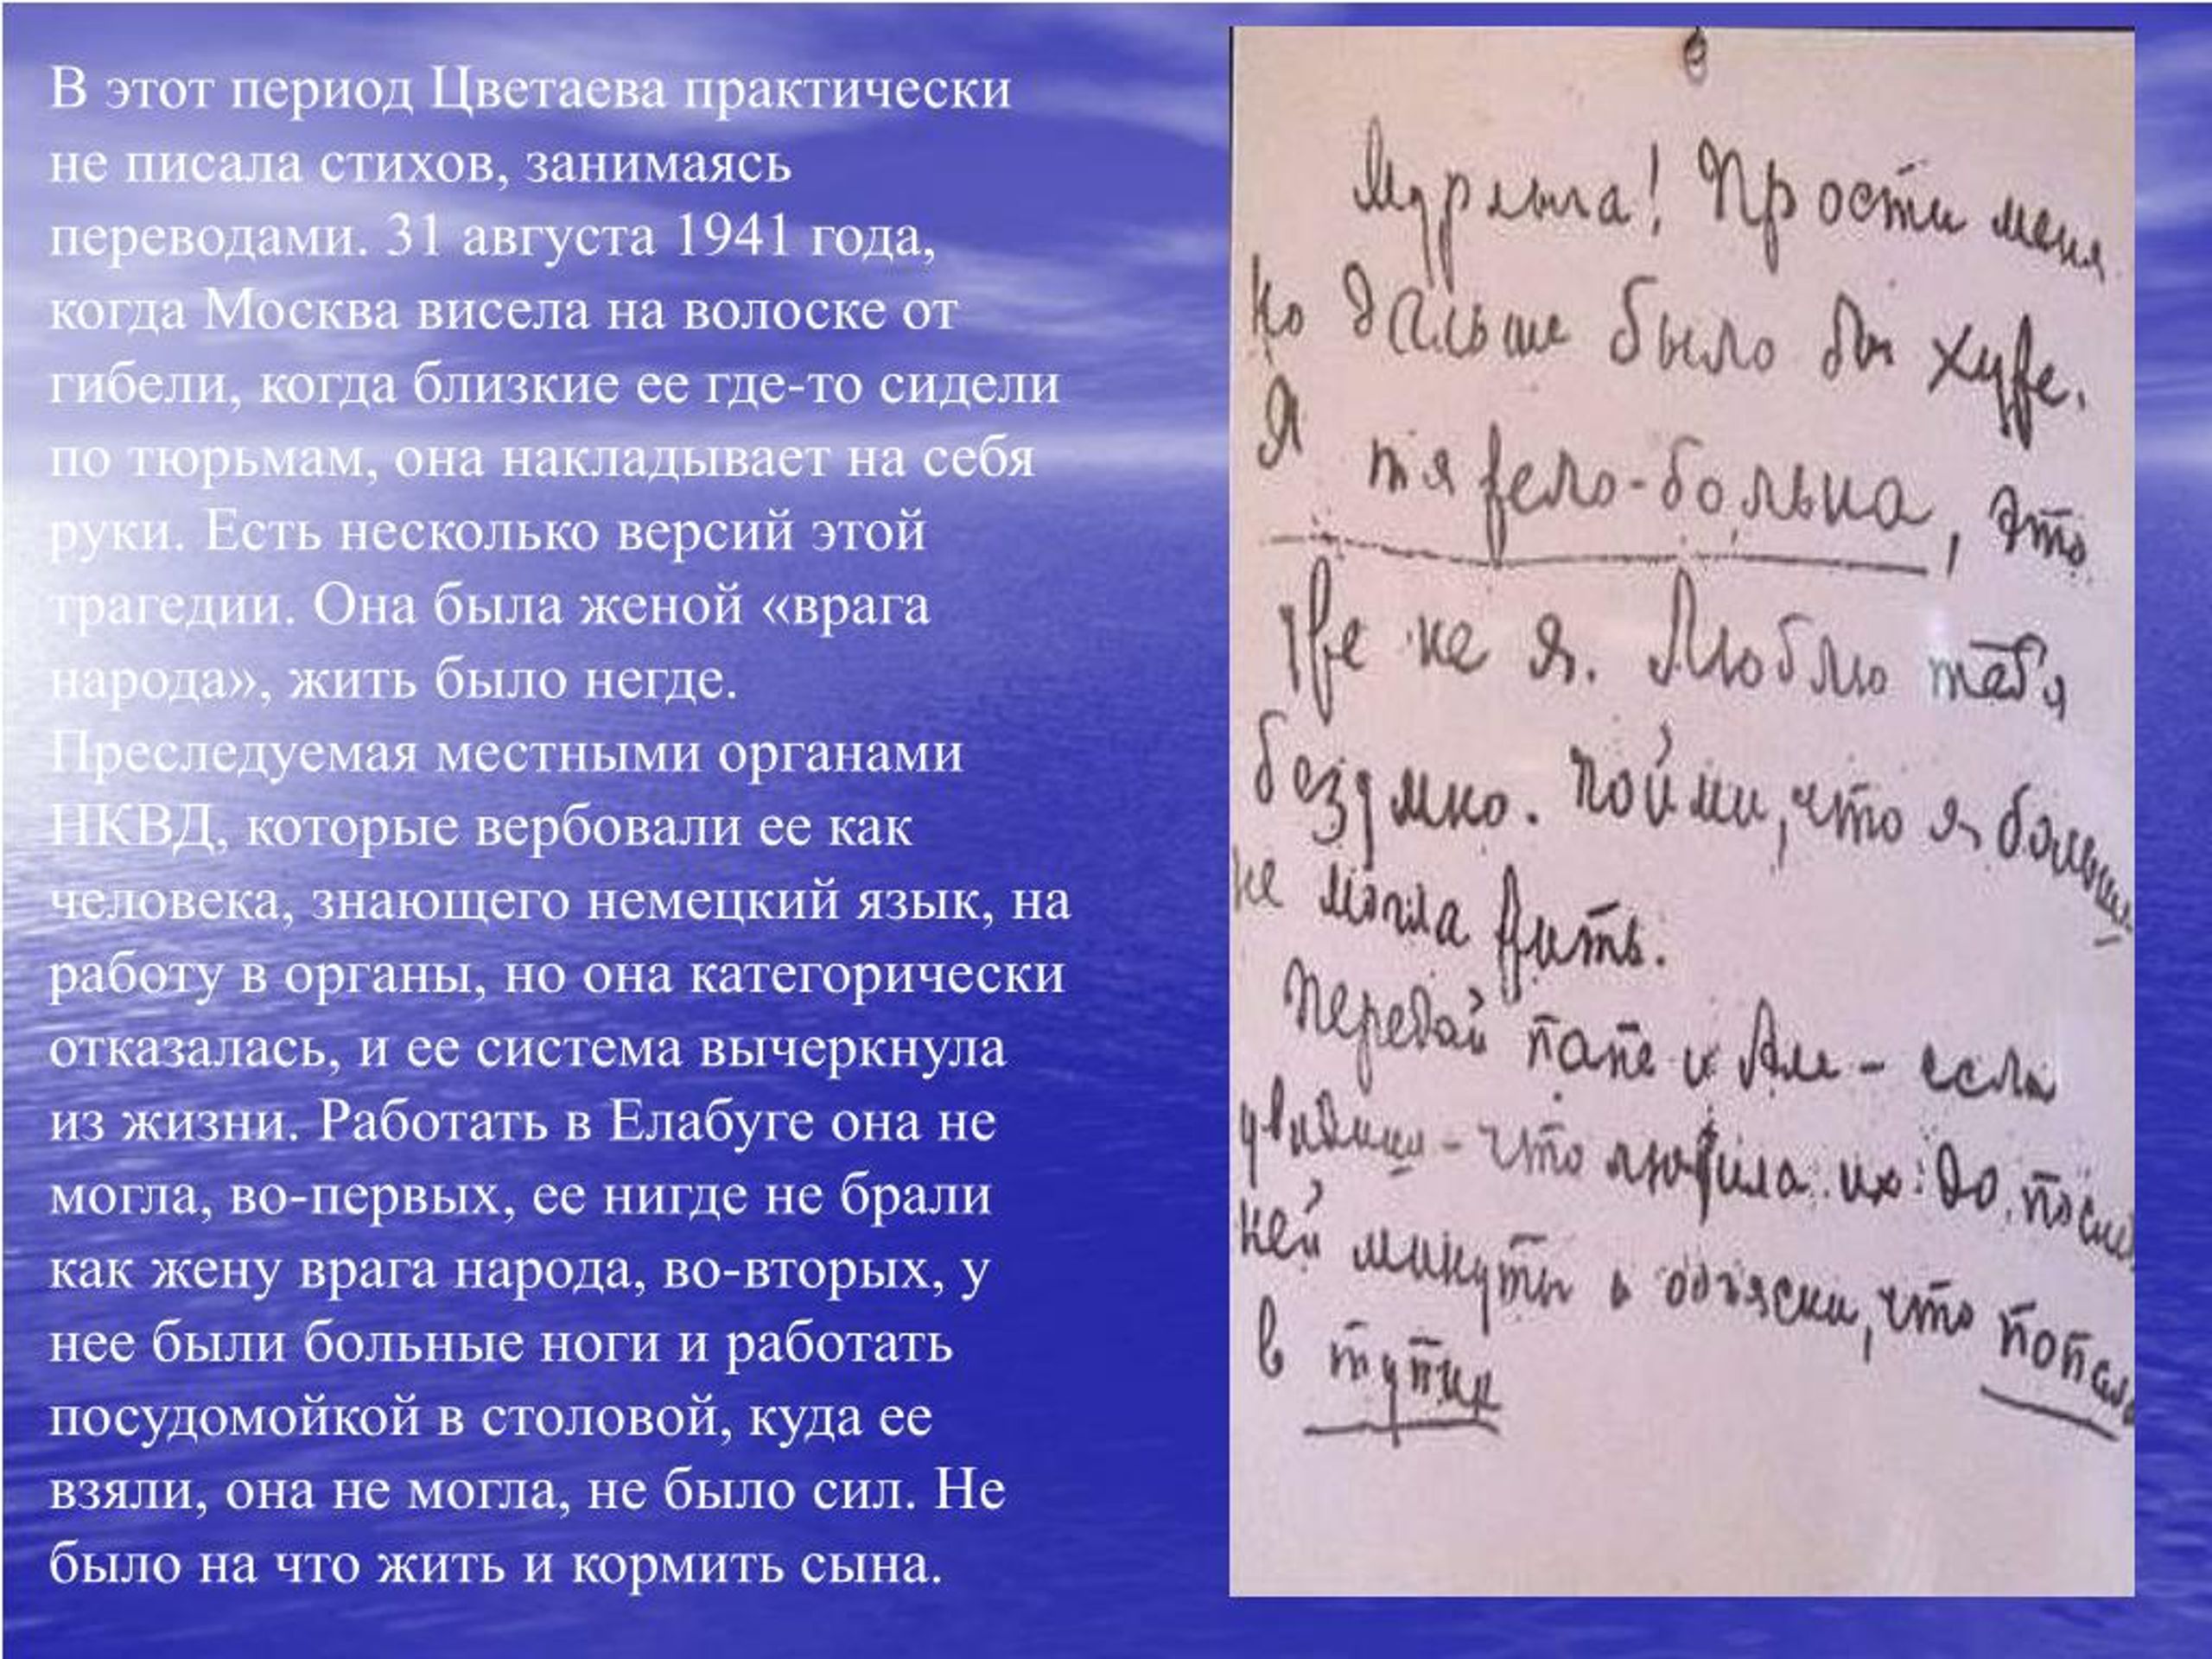 В этот период Цветаева практически
не писала стихов, занимаясь
переводами. 31 августа 1941 года,
когда Москва висела на волоске от
гибели, когда близкие ее где-то сидели
по тюрьмам, она накладывает на себя
руки. Есть несколько версий этой
трагедии. Она была женой «врага
народа», жить было негде.
Преследуемая местными органами
НКВД, которые вербовали ее как
человека, знающего немецкий язык, на
работу в органы, но она категорически
отказалась, и ее система вычеркнула
из жизни. Работать в Елабуге она не
могла, во-первых, ее нигде не брали
как жену врага народа, во-вторых, у
нее были больные ноги и работать
посудомойкой в столовой, куда ее
взяли, она не могла, не было сил. Не
было на что жить и кормить сына.
Мурлыга! Прости меня
Но дальше было бы хуже.
Я тяжело-больна, это
уже не я. Люблю тебя
безумно. Пойми, что я больше
не могла жить.
Передай папе и Але – если
увидишь – что любила их до послед
ней минуты и объясни, что попала
в тупик